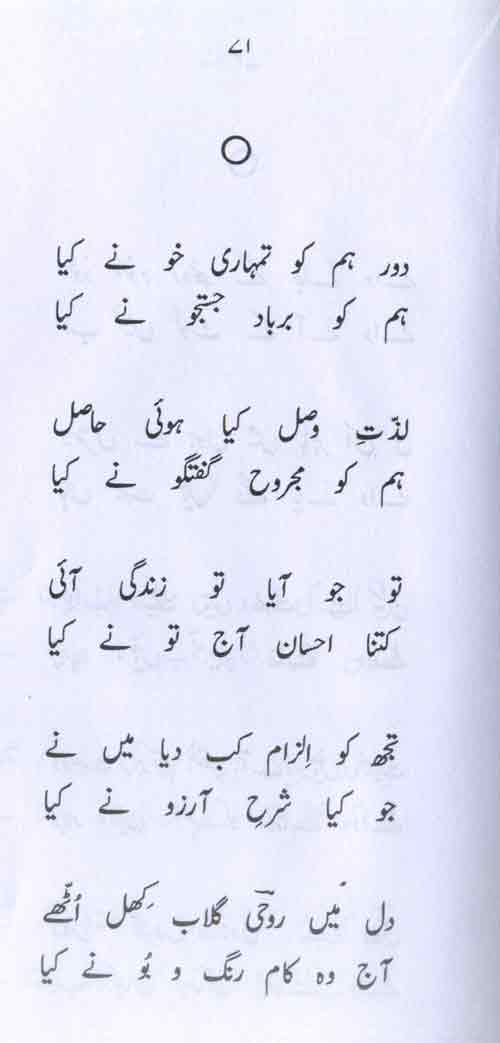 ۷۱
دور ہم کو تمہاری خو نے کیا
ہم کو برباد جستجو نے کیا
لذّتِ وصل کیا ہوئی حاصل
ہم کو مجروح گفتگو نے کیا
تو جو آیا تو زندگی آئی
کتنا احسان آج تو نے کیا
تجھ کو اِلزام کب دیا میں نے
جو کیا شرحِ آرزو نے کیا
دل میں روحیؔ گلاب کِھل اُٹھّے
آج وہ کام رنگ و بُو نے کیا